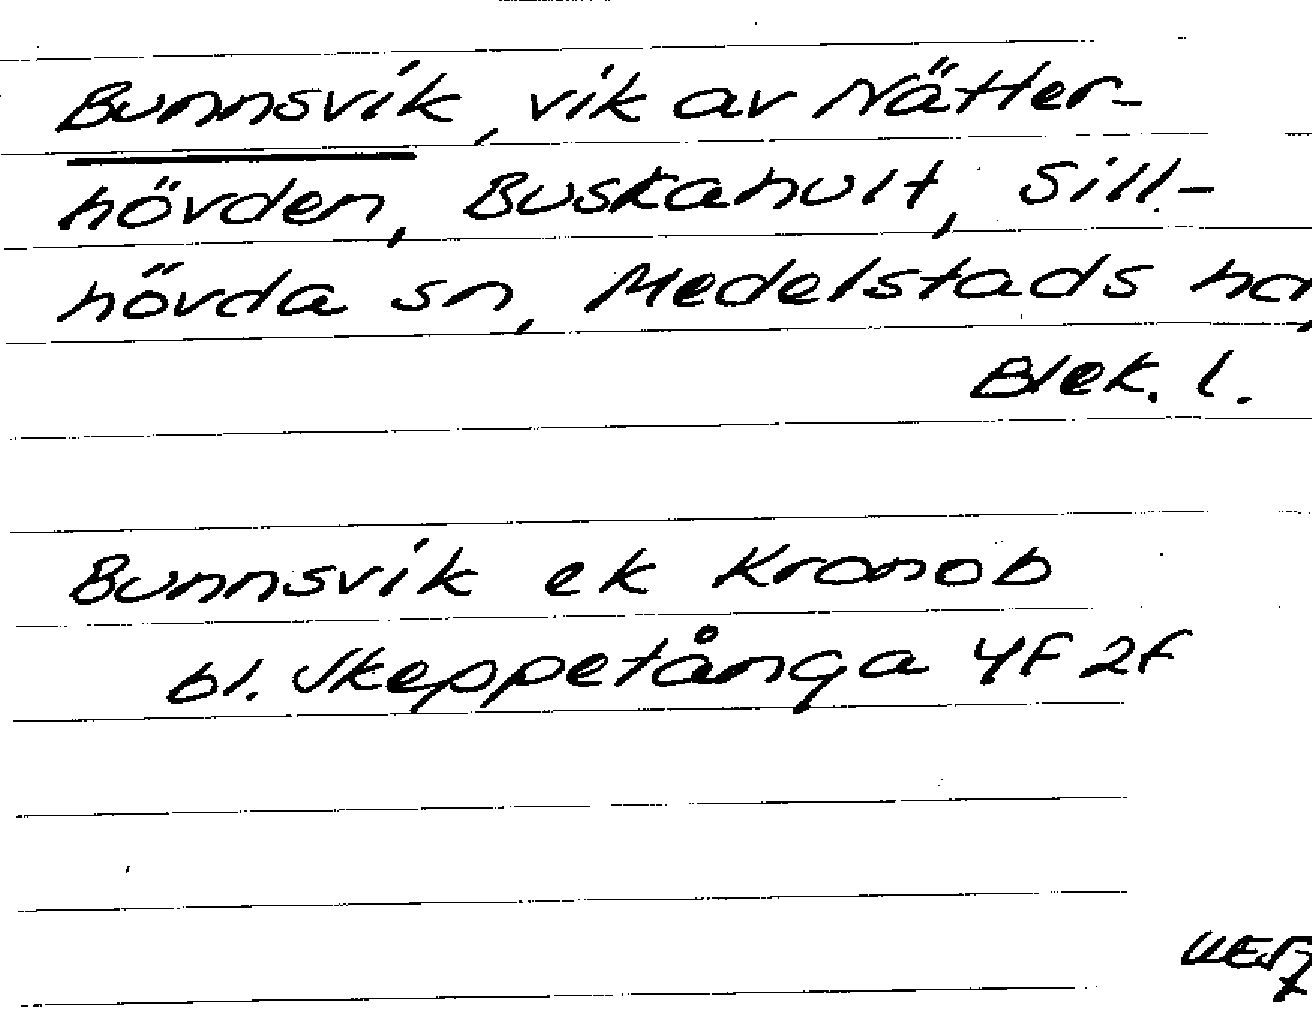 Bunnsvik, vik av Nätter-
hövden, Buskahult, Sill-
hövda sn, Medelstads hd,
Blek. l.
Bunnsvik ek Kronob
bl. Skeppetånga 4F 2f